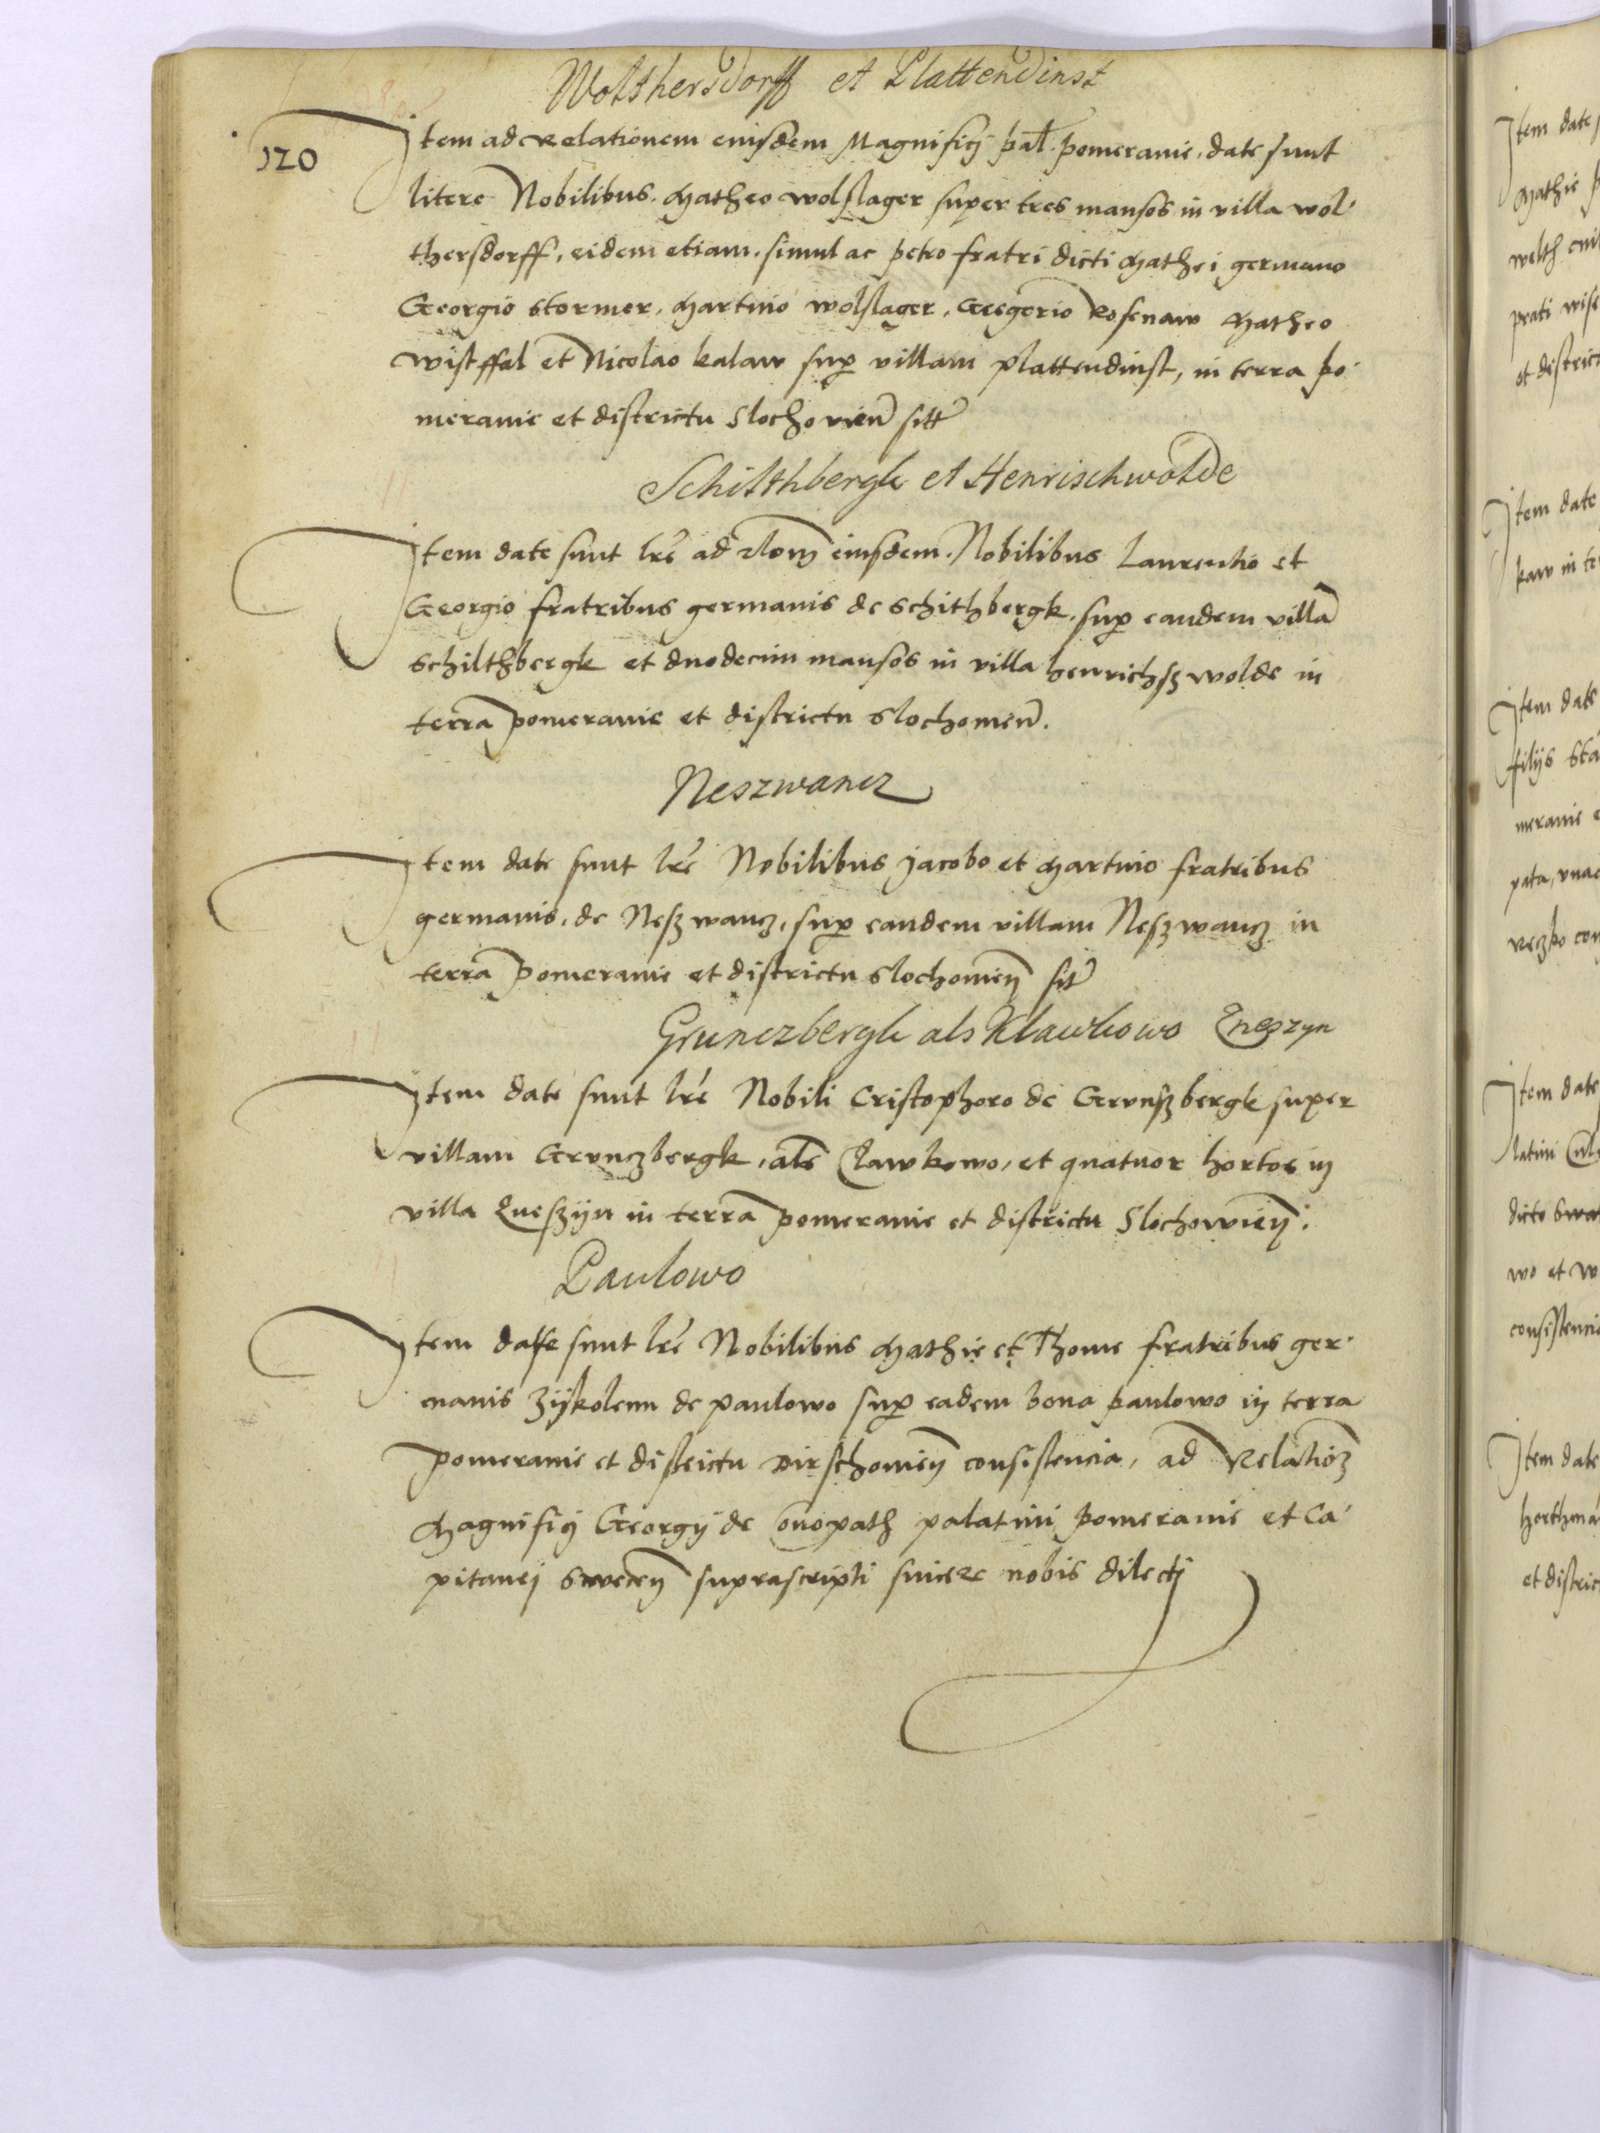 Wolthersdorff et Plattendinst
120
Item ad Relationem eiusdem Magnificj pal. pomeranie, date sunt
litere Nobilibus. Matheo wolslager super tres mansos in villa wol-
thersdorff, eidem etiam. simul ac petro fratri dicti Mathei germano
Georgio stormer, Martino wolslager, Gregorio Rosenaw Matheo
wistffal et Nicolao kalaw sup villam plattendinst, in terra po-
meranie et districtu Slochovien sitt
Schilthbergk et Henrischwolde
Item date sunt lre ad rlonem eiusdem. Nobilibus Laurentio et
Georgio fratribus germanis de schithbergk. sup eandem villa
schilthbergk et duodecim mansos in villa henrichsz wolde in
terra pomeranie et districtu slochomen.
Neszwancz
Item date sunt lre Nobilibus jacobo et Martino fratribus
germanis. de Nesz wancz, sup eandem villam Nesz wancz in
terra pomeranie et districtu slochomien sit
Grunczbergk als Klawkowo Qneszyn
Item date sunt lre Nobili Cristophoro de Grvnszbergk super
villam Grvnczbergk, als Clawkowo, et quatuor hortos in
villa Qneszyn in terra pomeranie et districtu Slochowien.
Paulowo
Item date sunt lre Nobilibus Mathie et Thome fratribus ger-
manis Zijkolenn de paulowo sup eadem bona paulowo in terra
pomeranie et districtu Dirschomien consistencia, ad Relationem
Magnificj Georgij de Conopath palatini pomeranie et Ca-
pitanej Swecen suprascripti sincere nobis dilectj
Item date
Mathie
welth
prati wise
et district
Item date
kaw in te
Item date
filijs Sta
meranie e
Item date
latini
dicto
wo et w
consistenci
Item date
et district